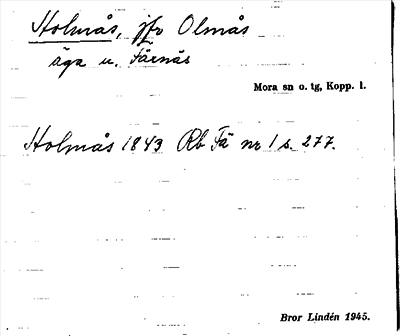 Holmås, jfr Olmås
äga u. Färnäs
Mora sn o. tg, Kopp. l.
Holmås 1843 Rb Fä nr 1 s. 277.
Bror Lindén 1945.